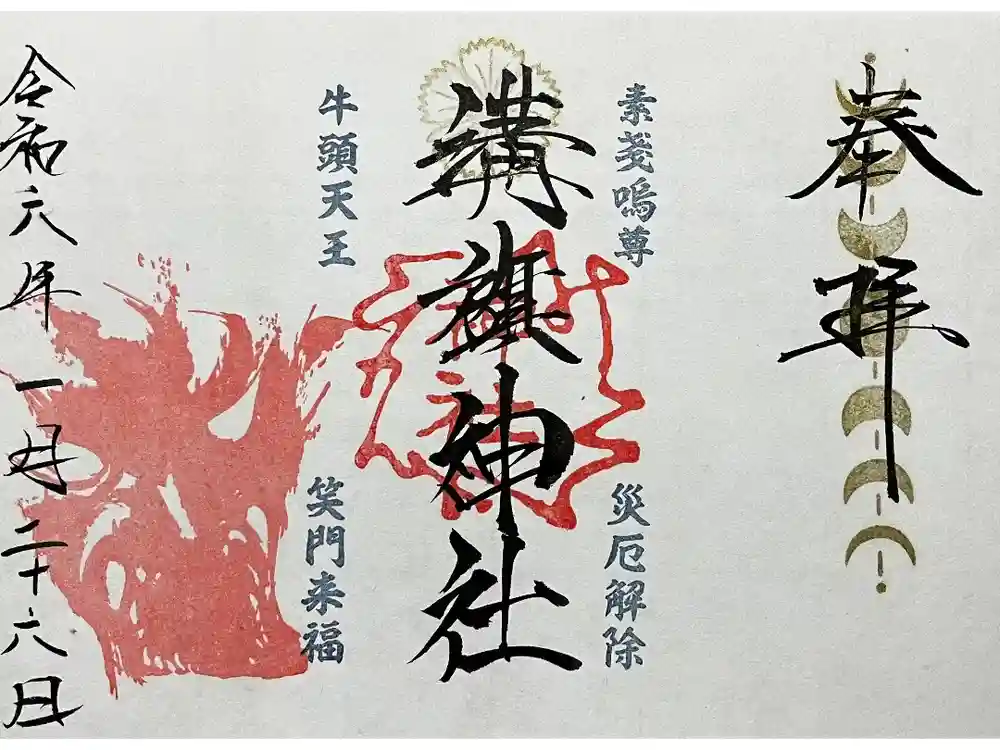 奉拝
素戔嗚尊
災厄解除
溝旗神社
牛頭天王
笑門来福
令和六年一月二十六日